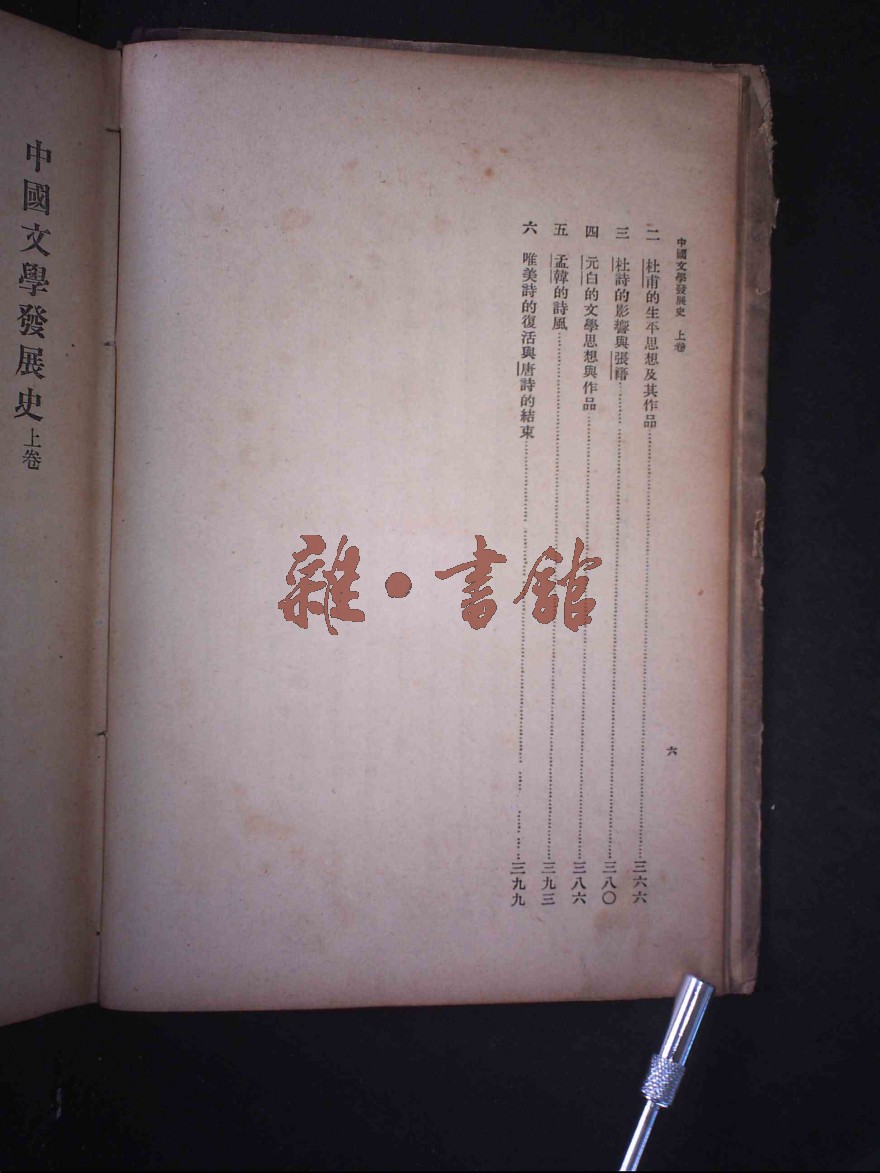 中國文學發展史 上卷
二 杜甫的生平思想及其作品……三六六
三 杜詩的影響與張籍……三八〇
四 元白的文學思想與作品……三八六
五 孟韓的詩風……三九三
六 唯美詩的復活與唐詩的結束……三九九
六
中國文學發展史 上卷
雜·書館